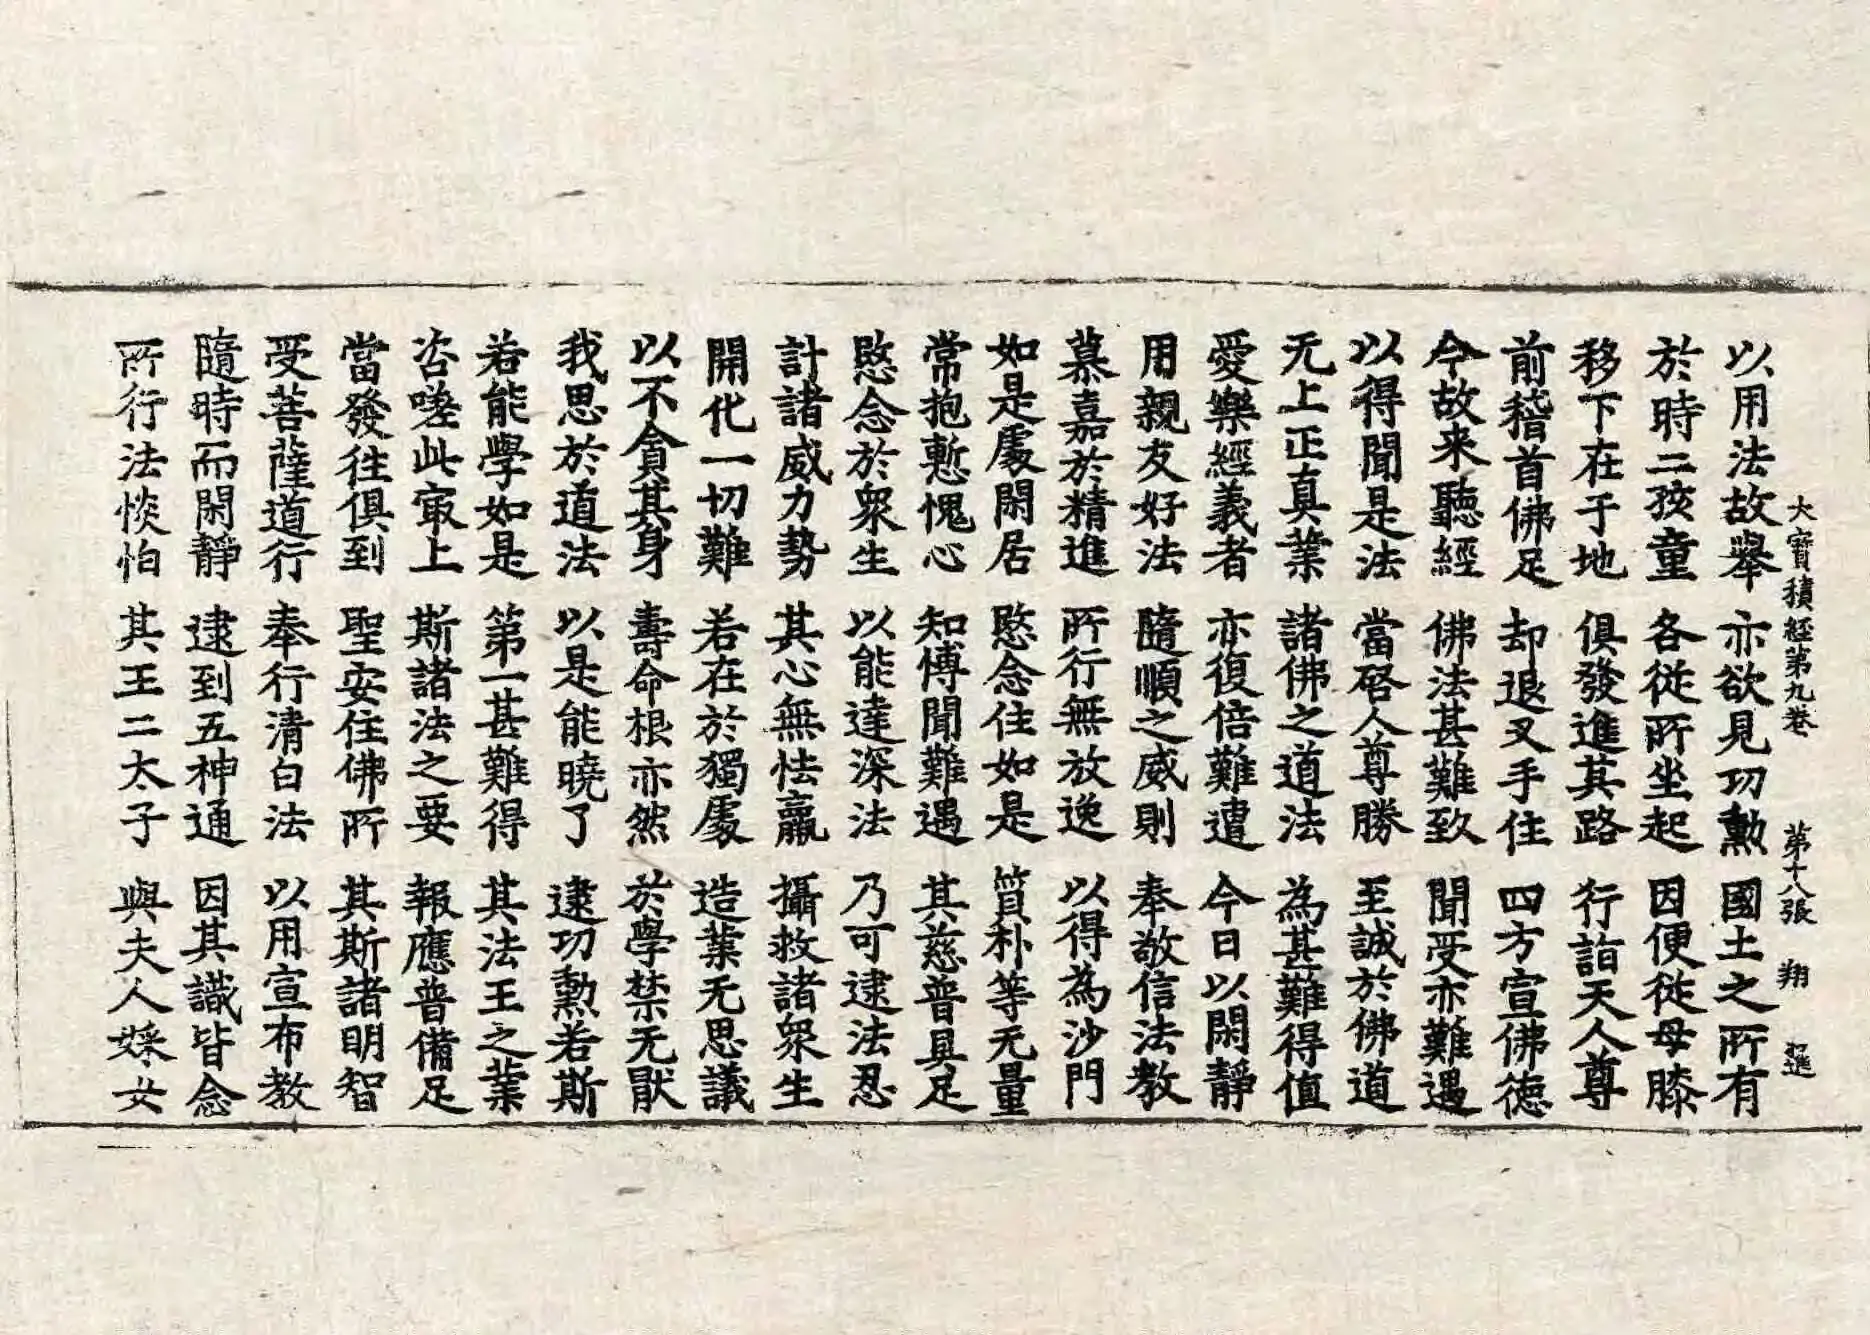 大寶積經第九卷 第十八張 翔
以用法故舉 亦欲見功勲 國土之所有
於時二孩童 各從所坐起 因便從母膝
移下在于地 俱發進其路 行詣天人尊
前稽首佛足 却退叉手住 四方宣佛德
今故来聽經 佛法甚難致 聞受亦難遇
以得聞是法 當啓人尊勝 至誠於佛道
无上正真業 諸佛之道法 為甚難得值
愛樂經義者 亦復倍難遭 今日以閑靜
用親友好法 隨順之威則 奉敬信法教
慕嘉於精進 所行無放逸 以得為沙門
如是處閑居 愍念住如是 質朴等无量
常抱慙愧心 知博聞難遇 其慈普具足
愍念於衆生 以能達深法 乃可逮法忍
計諸威力勢 其心無怯羸 攝救諸衆生
開化一切難 若在於獨處 造業无思議
以不貪其身 壽命根亦然 於學禁无猒
我思於道法 以是能曉了 逮功勲若斯
若能學如是 第一甚難得 其法王之業
咨嗟此㝡上 斯諸法之要 報應普備足
當發往俱到 聖安住佛所 其斯諸明智
受菩薩道行 奉行清白法 以用宣布教
隨時而閑靜 逮到五神通 因其識皆念
所行法惔怕 其王二太子 與夫人婇女